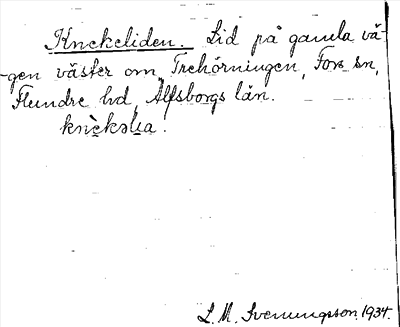 Knekeliden. Lid på gamla vä-
-gen väster om Trehörningen, Fors sn,
Flundre hd, Älfsborgs län.
L. M. Svenungsson. 1934.